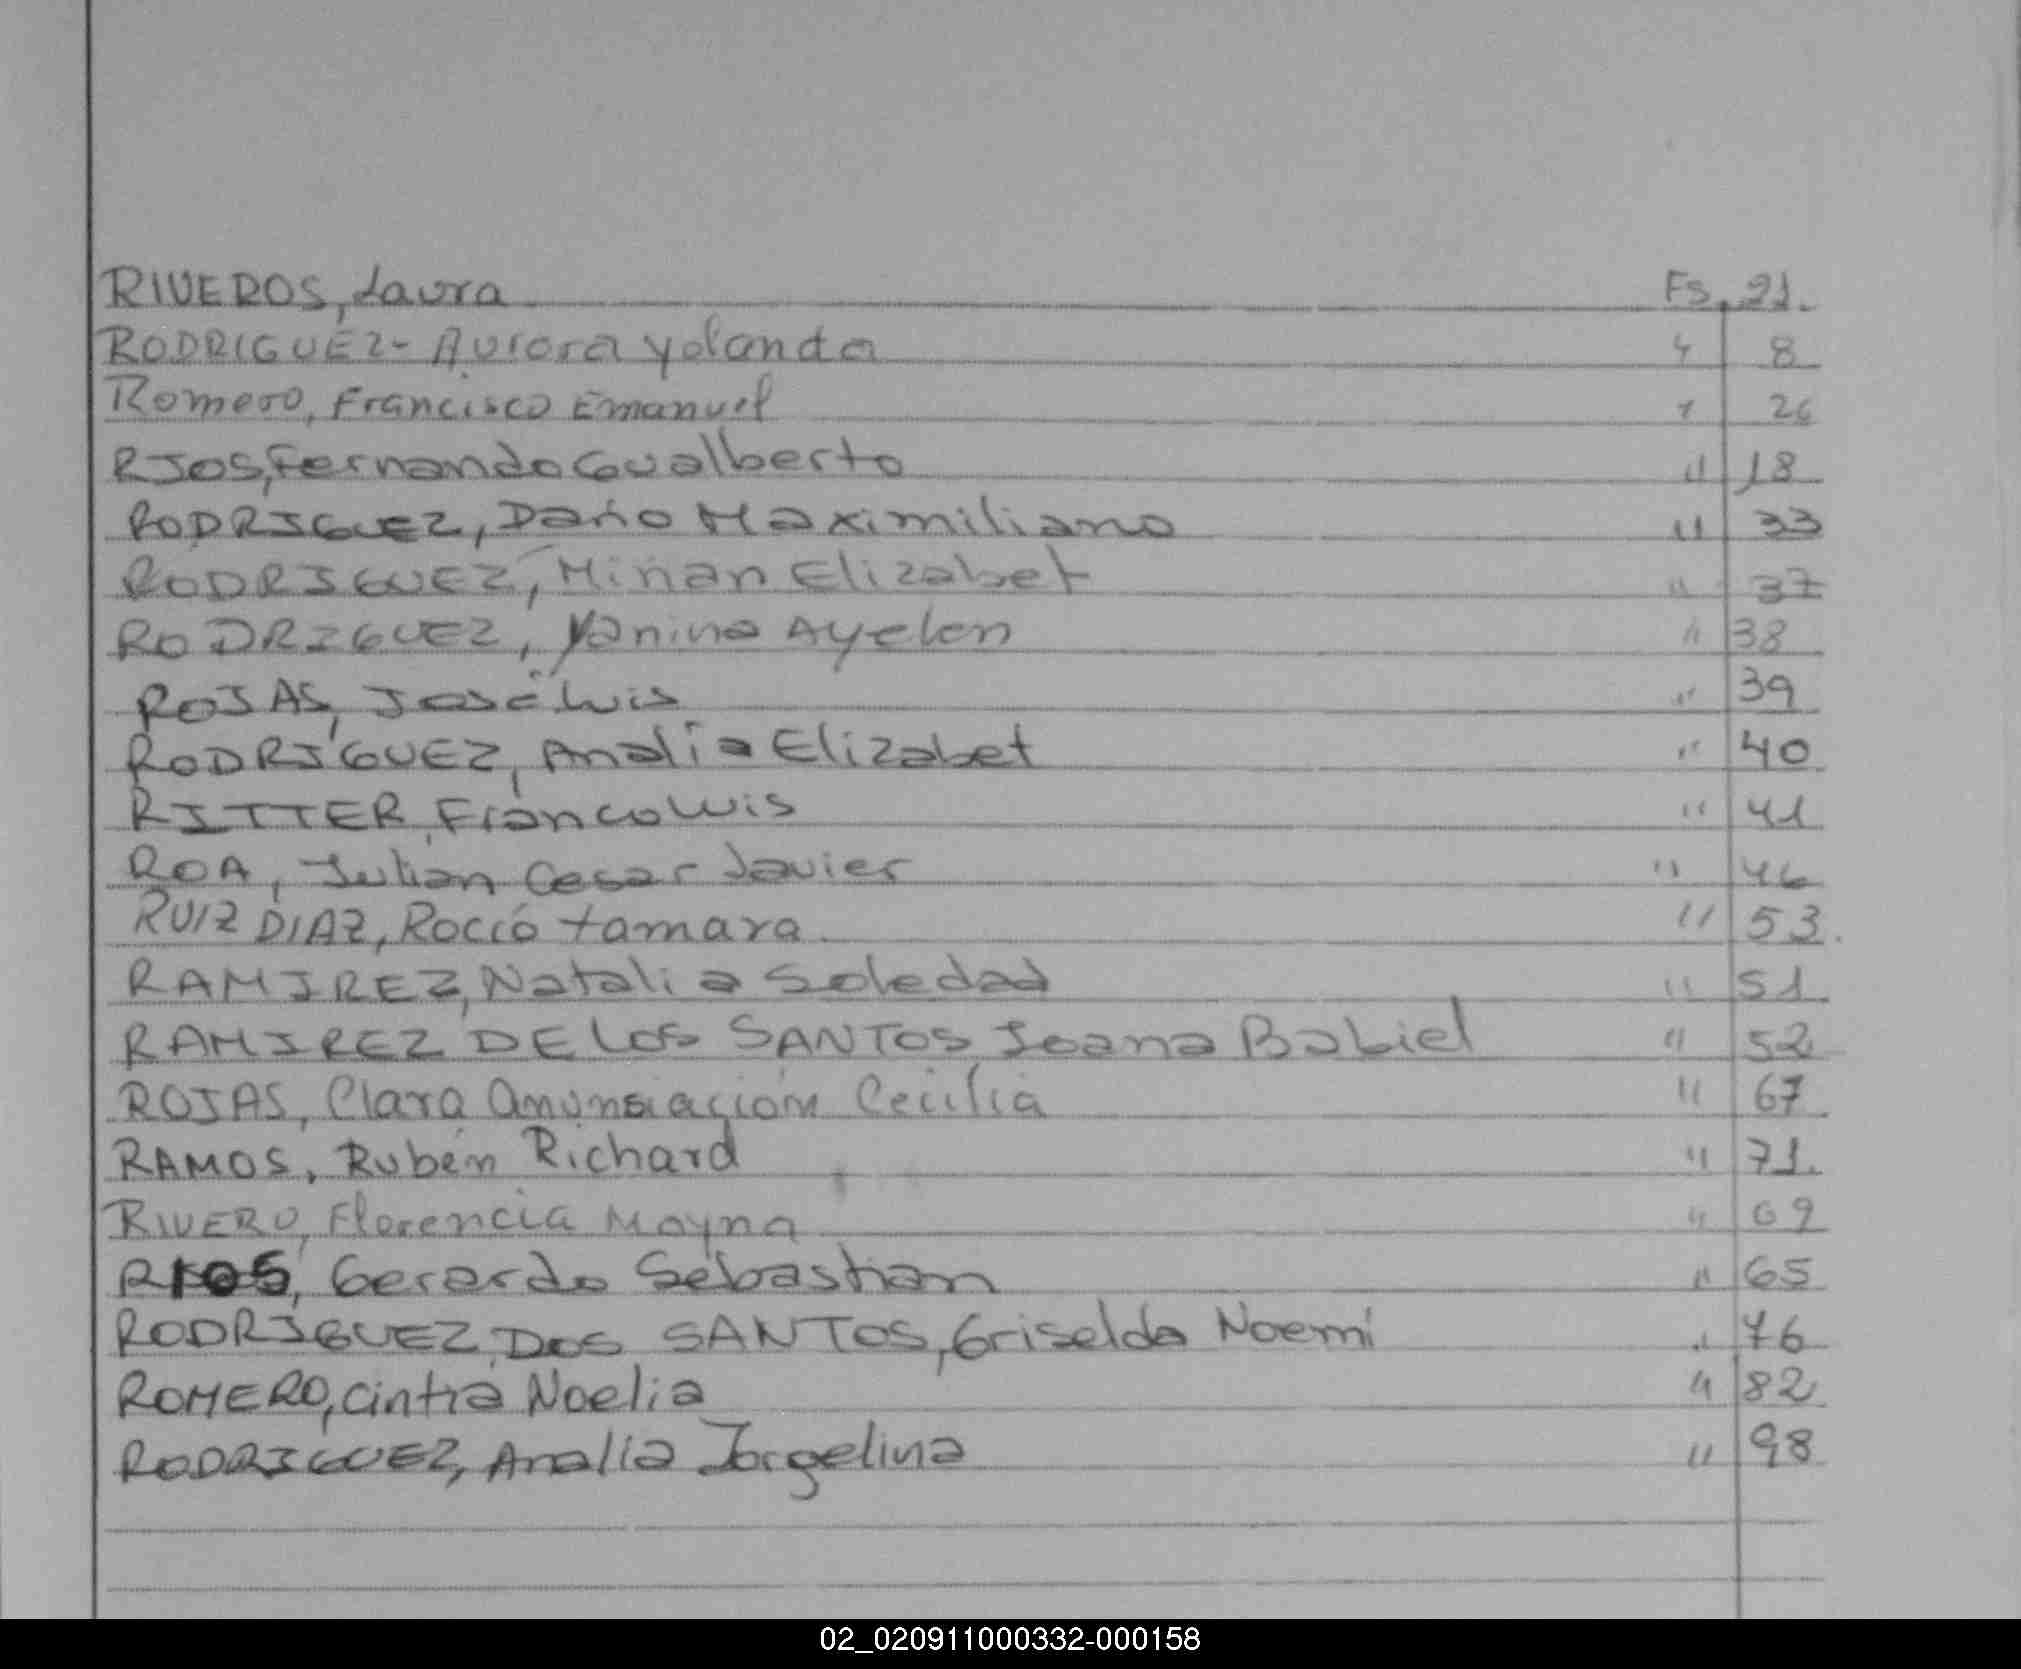 RIVEROS, Laura Fs. 21.
RODRIGUEZ- Aurora Yolanda " 8
Romero, Francisco Emanuel " 26
RIOS, Fernando Gualberto " 18
RODRIGUEZ, Darío Maximiliano " 33
RODRIGUEZ, Mirian Elizabet " 37
RODRIGUEZ, Yanina Ayelen " 38
ROJAS, José Luis " 39
RODRIGUEZ, Analia Elizabet " 40
RITTER, Franco Luis " 41
ROA, Julian Cesar Javier " 46
RUIZ DIAZ, Rocío tamara " 53.
RAMIREZ, Natalia Soledad " 51
RAMIREZ DE LOS SANTOS, Joana Babiel " 52
ROJAS, Clara Anunsiación Cecilia " 67
RAMOS, Rubén Richard " 71.
RIVERO, Florencia Mayna " 69
RIOS, Gerardo Sebastian " 65
RODRIGUEZ DOS SANTOS, Griselda Noemí " 76
ROMERO, Cintia Noelia " 82
RODRIGUEZ, Analia Jorgelina " 98
02_020911000332-000158